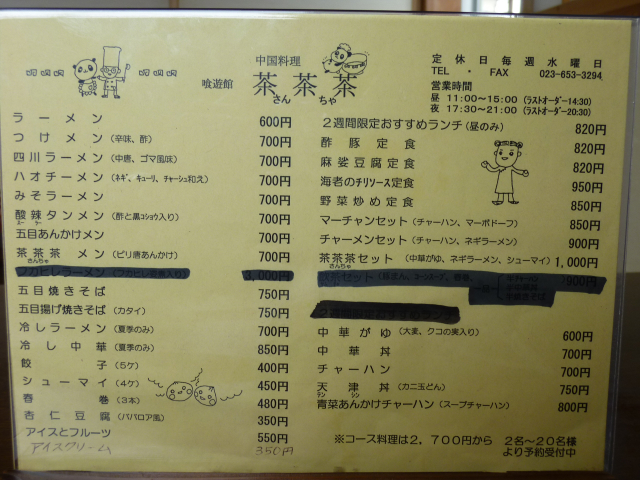 中国料理
喰遊館 茶茶茶
さん ちゃ
定休日毎週水曜日
TEL ・ FAX 023-653-3294
営業時間
昼 11:00～15:00 (ラストオーダー14:30)
夜 17:30～21:00 (ラストオーダー20:30)
ラーメン 600円
つけメン (辛味、酢) 700円
四川ラーメン (中唐、ゴマ風味) 700円
ハオチーメン (ネギ、キューリ、チャーシュ和え) 700円
みそラーメン 700円
酸辣タンメン (酢と黒コショウ入り) 700円
スー ラー
五目あんかけメン 700円
茶茶茶メン (ピリ唐あんかけ) 700円
さんちゃ
フカヒレラーメン (フカヒレ姿煮入り) 3,000円
五目焼きそば 750円
五目揚げ焼きそば (カタイ) 750円
冷しラーメン (夏季のみ) 700円
冷し中華 (夏季のみ) 850円
餃子 (5ケ) 400円
シューマイ (4ケ) 450円
春巻 (3本) 480円
杏仁豆腐 (ババロア風) 350円
アイスとフルーツ 550円
アイスクリーム 350円
2週間限定おすすめランチ (昼のみ) 820円
酢豚定食 820円
麻婆豆腐定食 820円
海老のチリソース定食 950円
野菜炒め定食 850円
マーチャンセット (チャーハン、マーボドーフ) 850円
チャーメンセット (チャーハン、ネギラーメン) 900円
茶茶茶セット (中華がゆ、ネギラーメン、シューマイ) 1,000円
さんちゃ
セット 900円
2週間限定おすすめランチ
中華がゆ (大麦、クコの実入り) 600円
中華丼 700円
チャーハン 700円
天津丼 (カニ玉どん) 750円
テン シン
青菜あんかけチャーハン (スープチャーハン) 800円
※コース料理は2,700円から 2名～20名様
より予約受付中